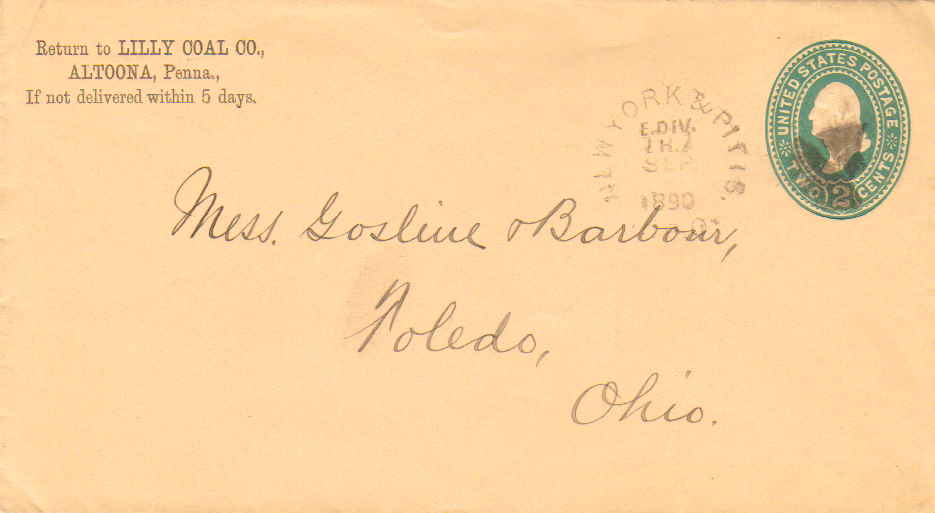 Return to LILLY COAL CO.,
ALTOONA, Penna.,
If not delivered within 5 days.
UNITED STATES POSTAGE
TWO 2 CENTS
NEW YORK & PITTS.
E.DIV.
SEP
1890
Mess. Gosline & Barbour,
Toledo,
Ohio.